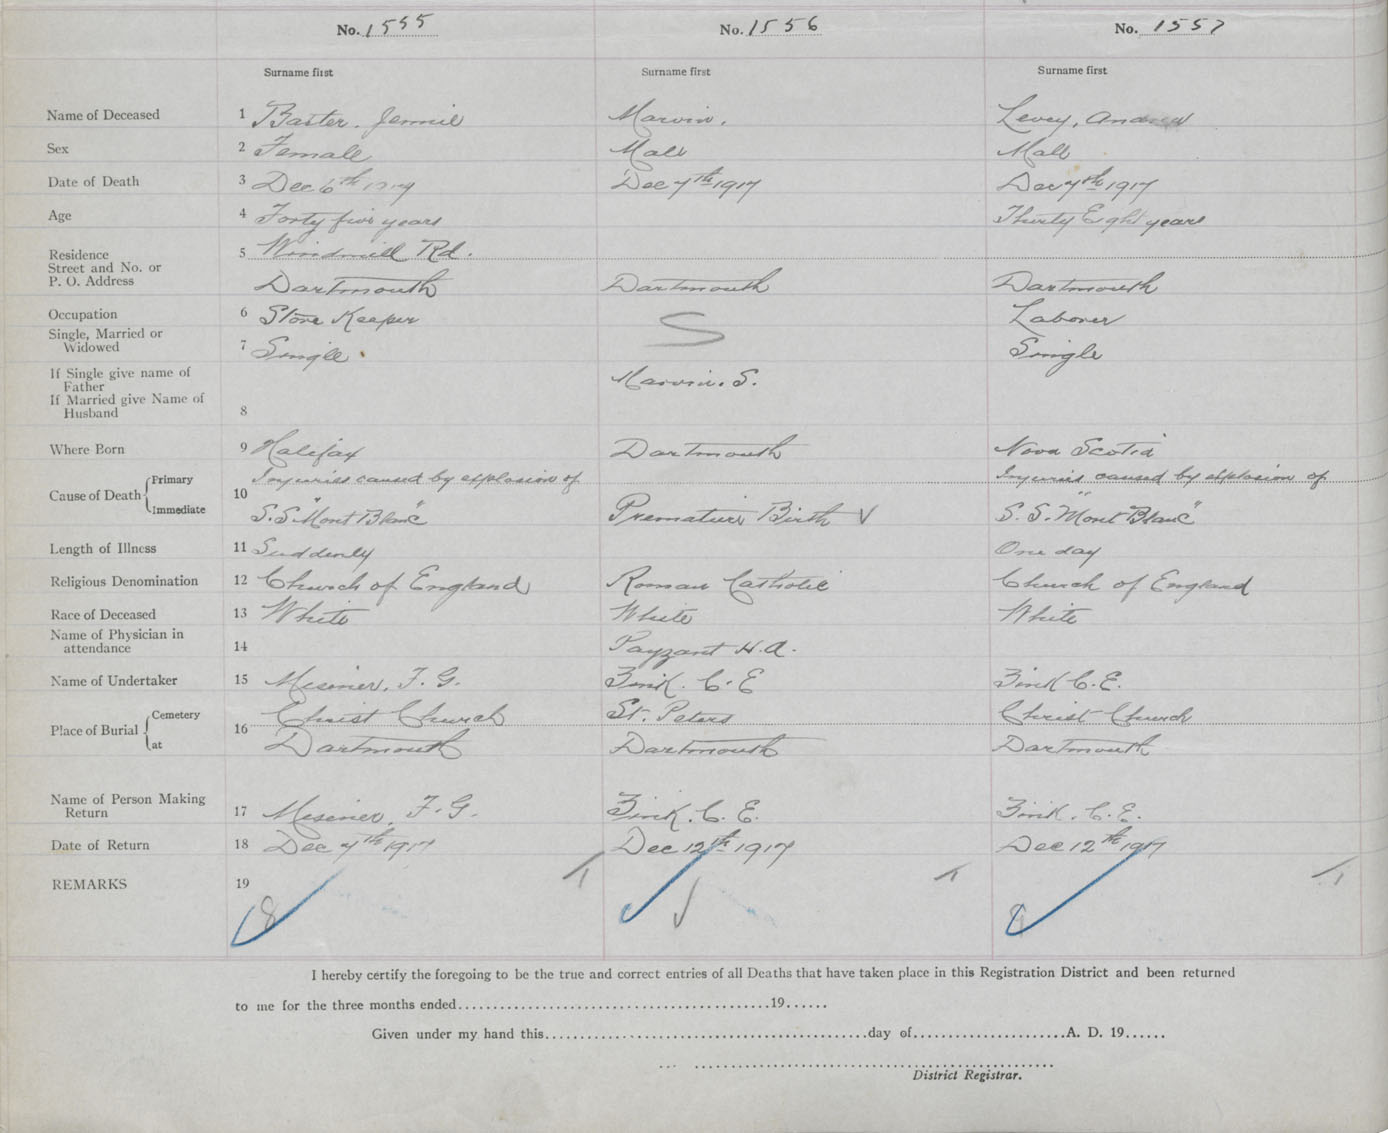 No. 1555 No. 1556 No. 1557
Surname first Surname first Surname first
Name of Deceased 1 Baxter. Jennie Marvin. Levey, Andrew
Sex 2 Female Male Male
Date of Death 3 Dec 6th 1917 Dec 7th 1917 Dec 7th 1917
Age 4 Forty five years Thirty Eight years
Residence 5 Windmill Rd.
Street and No. or
P. O. Address Dartmouth Dartmouth Dartmouth
Occupation 6 Store Keeper S Laborer
Single, Married or
Widowed 7 Single Single
If Single give name of
Father Marvin. S.
If Married give Name of
Husband 8
Where Born 9 Halifax Dartmouth Nova Scotia
Cause of Death Primary 10 Injuries caused by explosion of Injuries caused by explosion of
Immediate S.S. "Mont Blanc" Premature Birth S.S. "Mont Blanc"
Length of Illness 11 Suddenly One day
Religious Denomination 12 Church of England Roman Catholic Church of England
Race of Deceased 13 White White White
Name of Physician in
attendance 14 Payzant H.A.
Name of Undertaker 15 Misener, F.G. Zink. C.E Zink C.E.
Place of Burial Cemetery 16 Christ Church St. Peters Christ Church
at Dartmouth Dartmouth Dartmouth
Name of Person Making
Return 17 Misener, F.G. Zink. C.E. Zink. C.E.
Date of Return 18 Dec 7th 1917 Dec 12th 1917 Dec 12th 1917
REMARKS 19
8
I hereby certify the foregoing to be the true and correct entries of all Deaths that have taken place in this Registration District and been returned
to me for the three months ended 19
Given under my hand this day of A. D. 19
District Registrar.